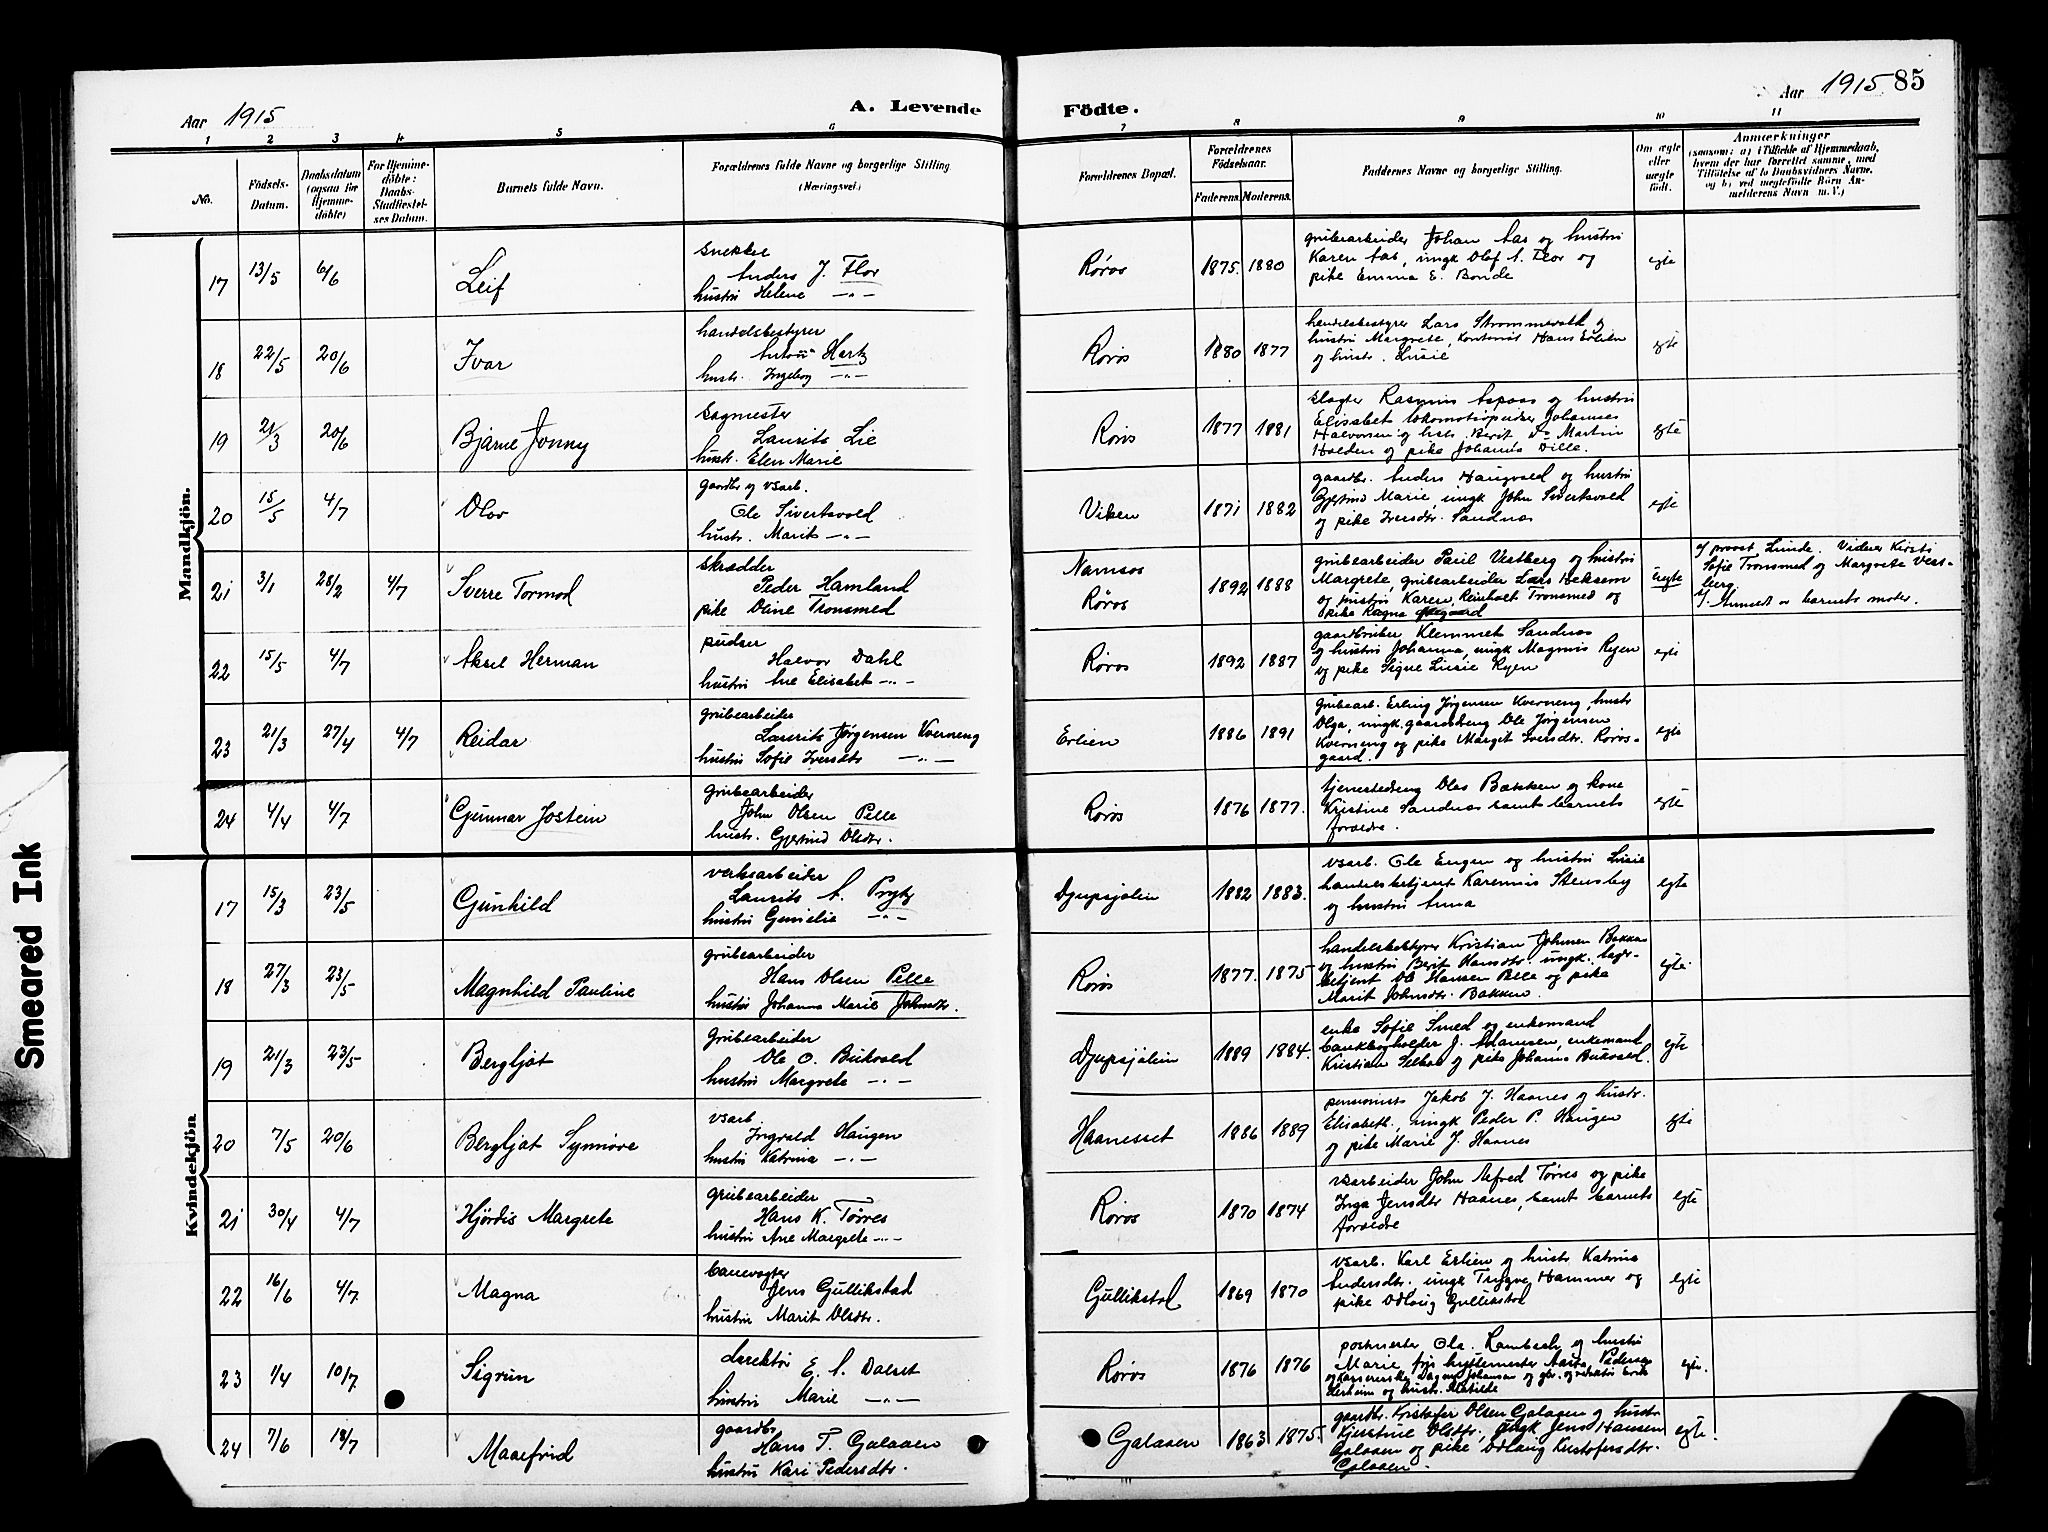 Aar 1915
A. Levende
Födte.
Aar 1915 85
1 2 3 4 5 6 7 8 9 10 11
No.
Födsels-
Datum.
Daabsdatum
(ogsaa for
Hjemme-
döbte)
For Hjemme-
döbte:
Daabs-
Stadfæstel-
ses Datum.
Barnets fulde Navn.
Forældrenes fulde Navne og borgerlige Stilling.
(Næringsvei.)
Forældrenes Bopæl.
Forældrenes
Födselsaar.
Faderens. Moderens.
Faddernes Navne og borgerlige Stilling.
Om ægte
eller
uægte
födt.
Anmærkninger
(saasom: a) i Tilfælde af Hjemmedaab,
hvem der har forrettet samme, med
Tilföielse af to Daabsvidners Navne,
og b) ved uægtefödte Börn An-
melderens Navn m. V.)
Mandkjön.
17 13/5 6/6 Leif
snekker
Anders J. Flor
hustru Helene -"-
Røros 1875. 1880
grubearbeider Johan Aas og hustru
Karen Aas, ungk Olaf A. Flor og
pike Emma E. Bonde
egte
18 22/5 20/6 Ivar
handelsbestyrer
Anton Hertz
hustr. Ingeborg -"-
Røros 1880 1877
handelsbestyrer Lars Strømmevold og
hustru Margrete, Kontorist Hans Erlien
og hustr. Lusie
egte
19 21/3 20/6 Bjarne Jonny
Sagmester
Laurits Lie
hustr. Elen Marie
Røros 1877 1881
slagter Rasmus Aspaas og hustru
Elisabet lokomotivpudser Johannes
Halvorsen og hustr. Berit, do Martin
Holden og pike Johanna Dille.
egte
20 15/5 4/7 Olov
gaardbr og vsarb.
Ole Sivertsvold
hustr. Marit -"-
Viken 1871 1882
gaardbr. Anders Haugvold og hustru
Gjertrud Marie, ungk John Sivertsvold
og pike Iversdtr. Sandnes
egte
21 3/1 28/2 4/7 Sverre Tormod
skrædder
Peder Hamland
pike Oline Tronsmed
Namsos
Røros
1892 1888
grubearbeider Paul Vestberg og hustru
Margrete, grubearbeider Lars Heksem
og hustru Karen, Reinholt Tronsmed og
pike Ragna
uegte
af provst Lunde. Vidner Kirsti
Sofie Tronsmed og Margrete Vest-
berg.
Anmeldt av barnets moder.
22 15/5 4/7 Aksel Herman
pudser
Halvor Dahl
hustru Ane Elisabet -"-
Røros 1892 1887
gaardbruker Klemmet Sandnes
og hustru Johanna, ungk Magnus Ryen
og pike Signe Lusie Ryen
egte
23 21/3 27/4 4/7 Reidar
grubearbeider
Laurits Jørgensen Kverneng
hustru Sofie Iversdtr -"-
Erlien 1886 1891
grubearb. Erling Jørgensen Kverneng, hustr
Olga, ungk. gaardsdreng Ole Jørgensen
Kverneng og pike Margit Iversdtr. Røros-
gaard.
egte
24 4/4 4/7 Gunnar Jostein
grubearbeider
John Olsen Pelle
hustr. Gjertrud Olsdtr.
Røros 1876 1877.
tjenestedreng Olas Bakken og kone
Kristine Sandnes samt barnets
forældre.
egte
Kvindekjön.
17 15/3 23/5 Gunhild
verksarbeider
Laurits A. Prytz
hustru Gunelia -"-
Djupsjølien 1882 1883.
vsarb. Ole Engen og hustru Lusie
handelsbetjent Karenius Stensby
og hustru Anna
egte
18 27/3 23/5 Magnhild Pauline
grubearbeider
Hans Olsen Pelle
hustru Johanna Marie Johnsdtr.
Røros 1877. 1875
handelsbestyrer Kristian Johnsen Bakken
og hustru Berit Hansdtr ungk. lager-
betjent Ole Hansen Pelle og pike
Marit Johnsdtr. Bakken.
egte.
19 21/3 23/5 Bergljot
grubearbeider
Ole O. Bukvold
hustru Margrete -"-
Djupsjølien 1889 1884.
enke Sofie Smed og enkemand
bankbogholder J. Adamsen, enkemand
Kristian Selboe og pike Johanna Bukvold.
egte
20 7/5 20/6 Bergljot Synnøve
vsarb
Ingvald Haugen
hustru Katrina -"-
Haanesset 1886 1889
pensionist Jakob J. Haanes og hustr.
Elisabeth, ungk Peder P. Haugen
og pike Marie J. Haanes
egte
21 30/4 4/7 Hjørdis Margrete
grubearbeider
Hans K. Tørres
hustru Ane Margrete -"-
Røros 1870 1874
vsarbeider John Alfred Tørres og pike
Inga Jensdtr Haanes, samt barnets
forældre
egte
22 16/6 4/7. Magna
banevogter
Jens Gullikstad
hustru Marit Olsdtr.
Gullikstad 1869 1870
vsarb. Karl Erlien og hustr Katrina
Andersdtr. ungk Trygve Hammer og
pike Odlaug Gullikstad
egte
23 1/4 10/7 Sigrun
direktør
E. A. Dalset
hustru Marie -"-
Røros 1876 1876
postmester Ole Kambech og hustru
Marie, frk hyttemester Aasta Pedersen
og kassererske Dagny Johansen og gbr. og redaktør
og hustr. Matilde
egte.
24 7/6 18/7 Maalfrid
gaardbr
Hans T. Galaaen
hustru Kari Pedersdtr.
Galaaen 1863 1875.
gaardbr. Kristofer Olsen Galaaen og hustr
Kjerstine Olsdtr, ungk Jens Hansen
Galaaen og pike Odlaug Kristofersdtr.
Galaaen.
egte.
Smeared Ink